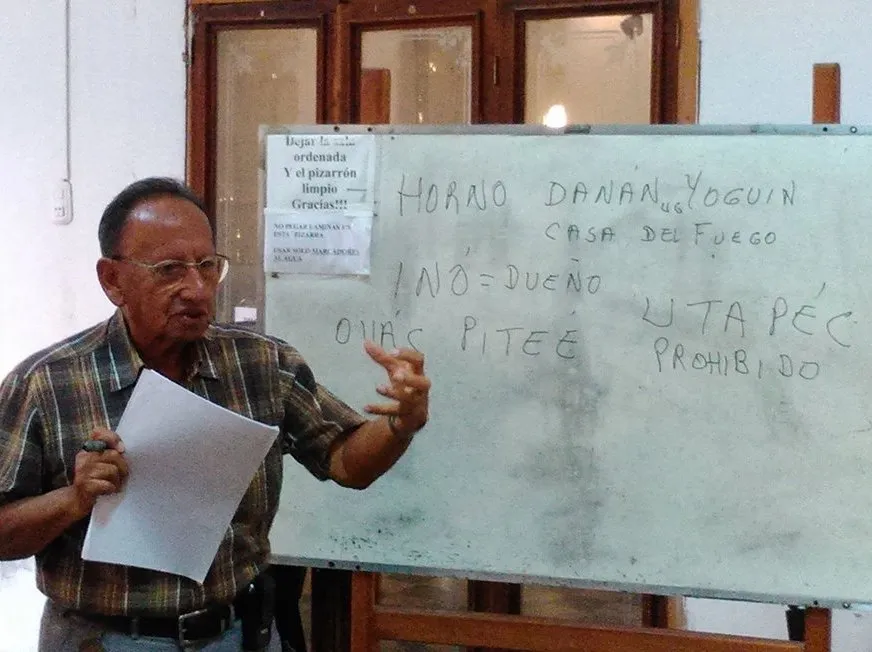 Dejar la sala
ordenada
Y el pizarrón
limpio
Gracias!!!
NO PEGAR LAMINAS EN
ESTA PIZARRA
USAR SOLO MARCADORES
AL AGUA
HORNO DANÁN YOGUIN
CASA DEL FUEGO
INÓ = DUEÑO
PITEÉ
UTAPÉC
PROHIBIDO